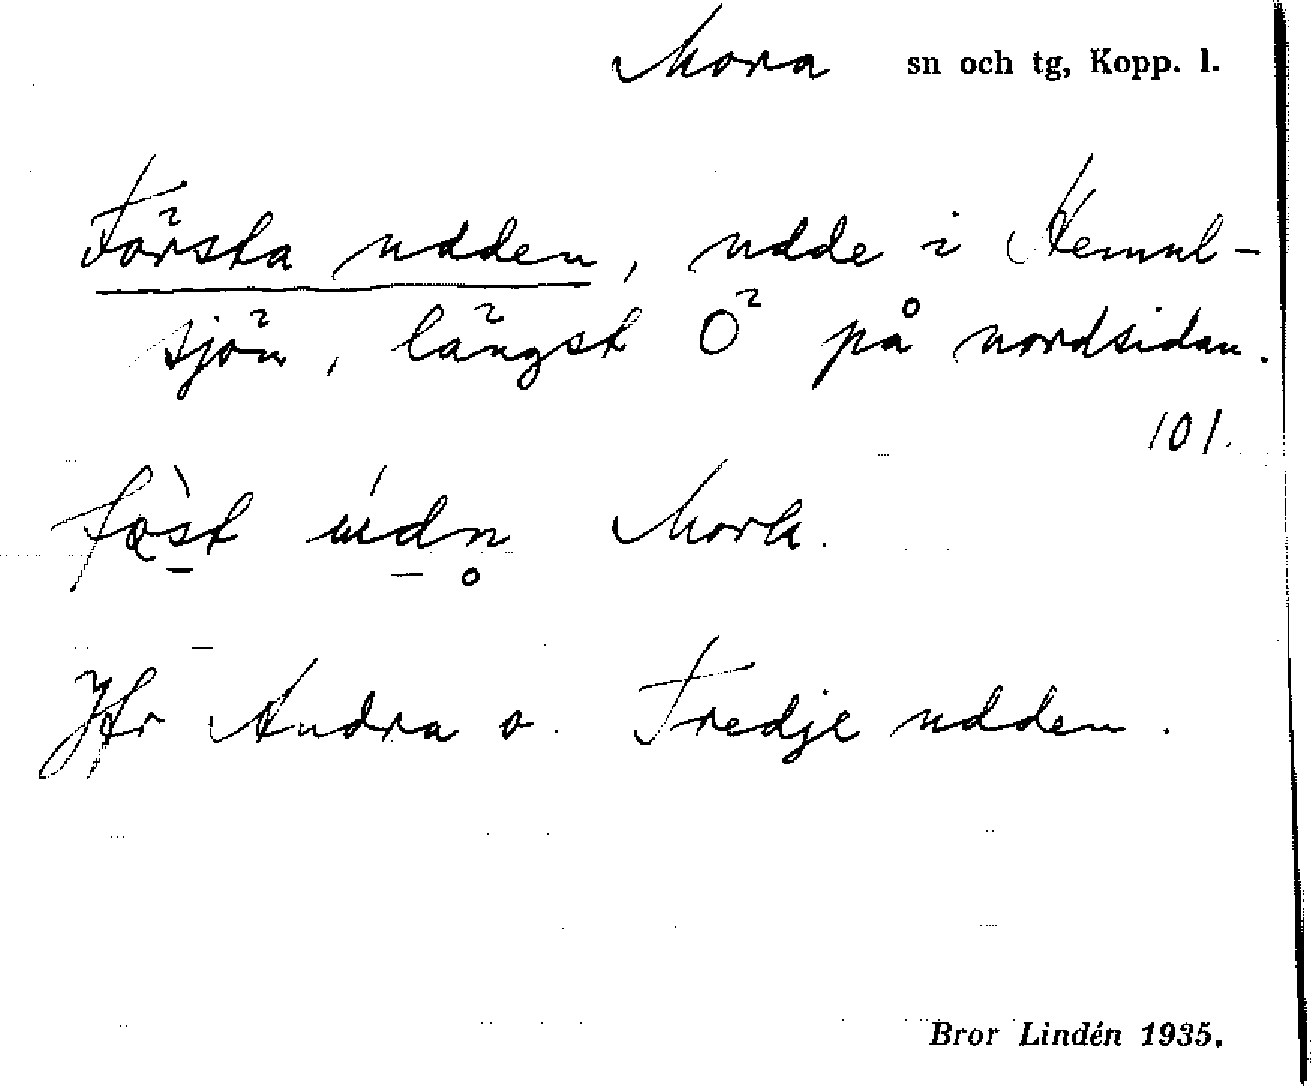 Mora sn och tg, Kopp. l.
Första udden, udde i Hemul-
sjön, längst Ö på nordsidan.
101.
Mork.
Jfr Andra o. Tredje udden.
Bror Lindén 1935.